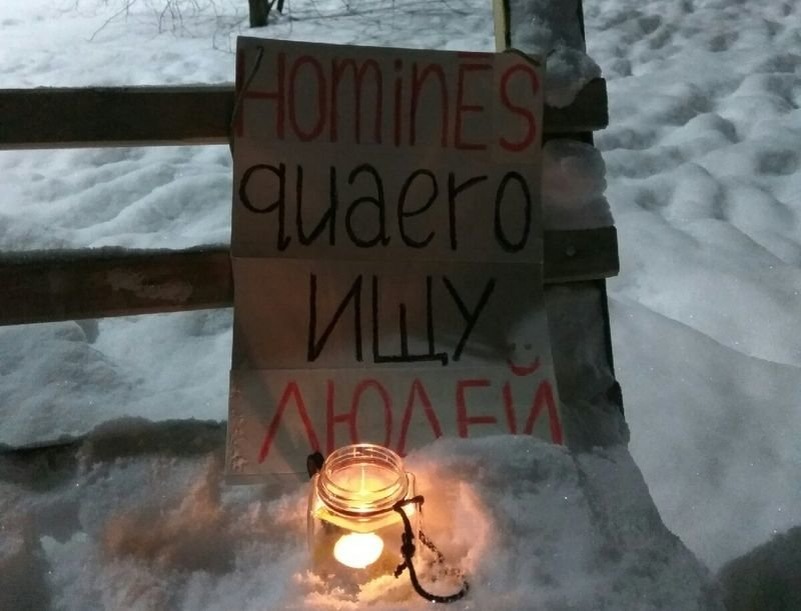 HominĒS
quaero
ИЩУ
ЛЮДЕЙ